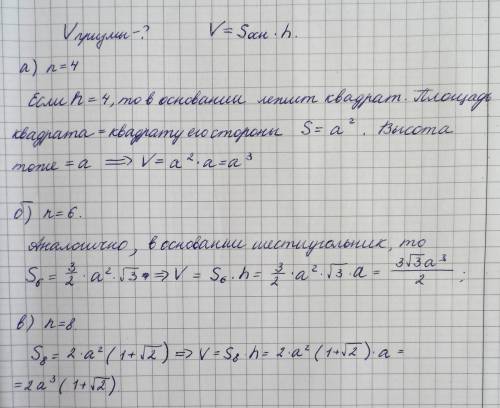 Vпризмы-? V = Sосн · h.
а) n=4
Если n = 4, то в основании лежит квадрат. Площадь
квадрата = квадрату его стороны S = a². Высота
тоже = a ⟹ V = a²·a = a³
б) n=6.
Аналогично, в основании шестиугольник, то
S₆ = 3/2 · a² · √3 ⟹ V = S₆ · h = 3/2 · a² · √3 · a = 3√3a³/2 ;
в) n=8
S₈ = 2·a²(1+√2) ⟹ V = S₈·h = 2·a²(1+√2)·a =
= 2a³(1+√2).